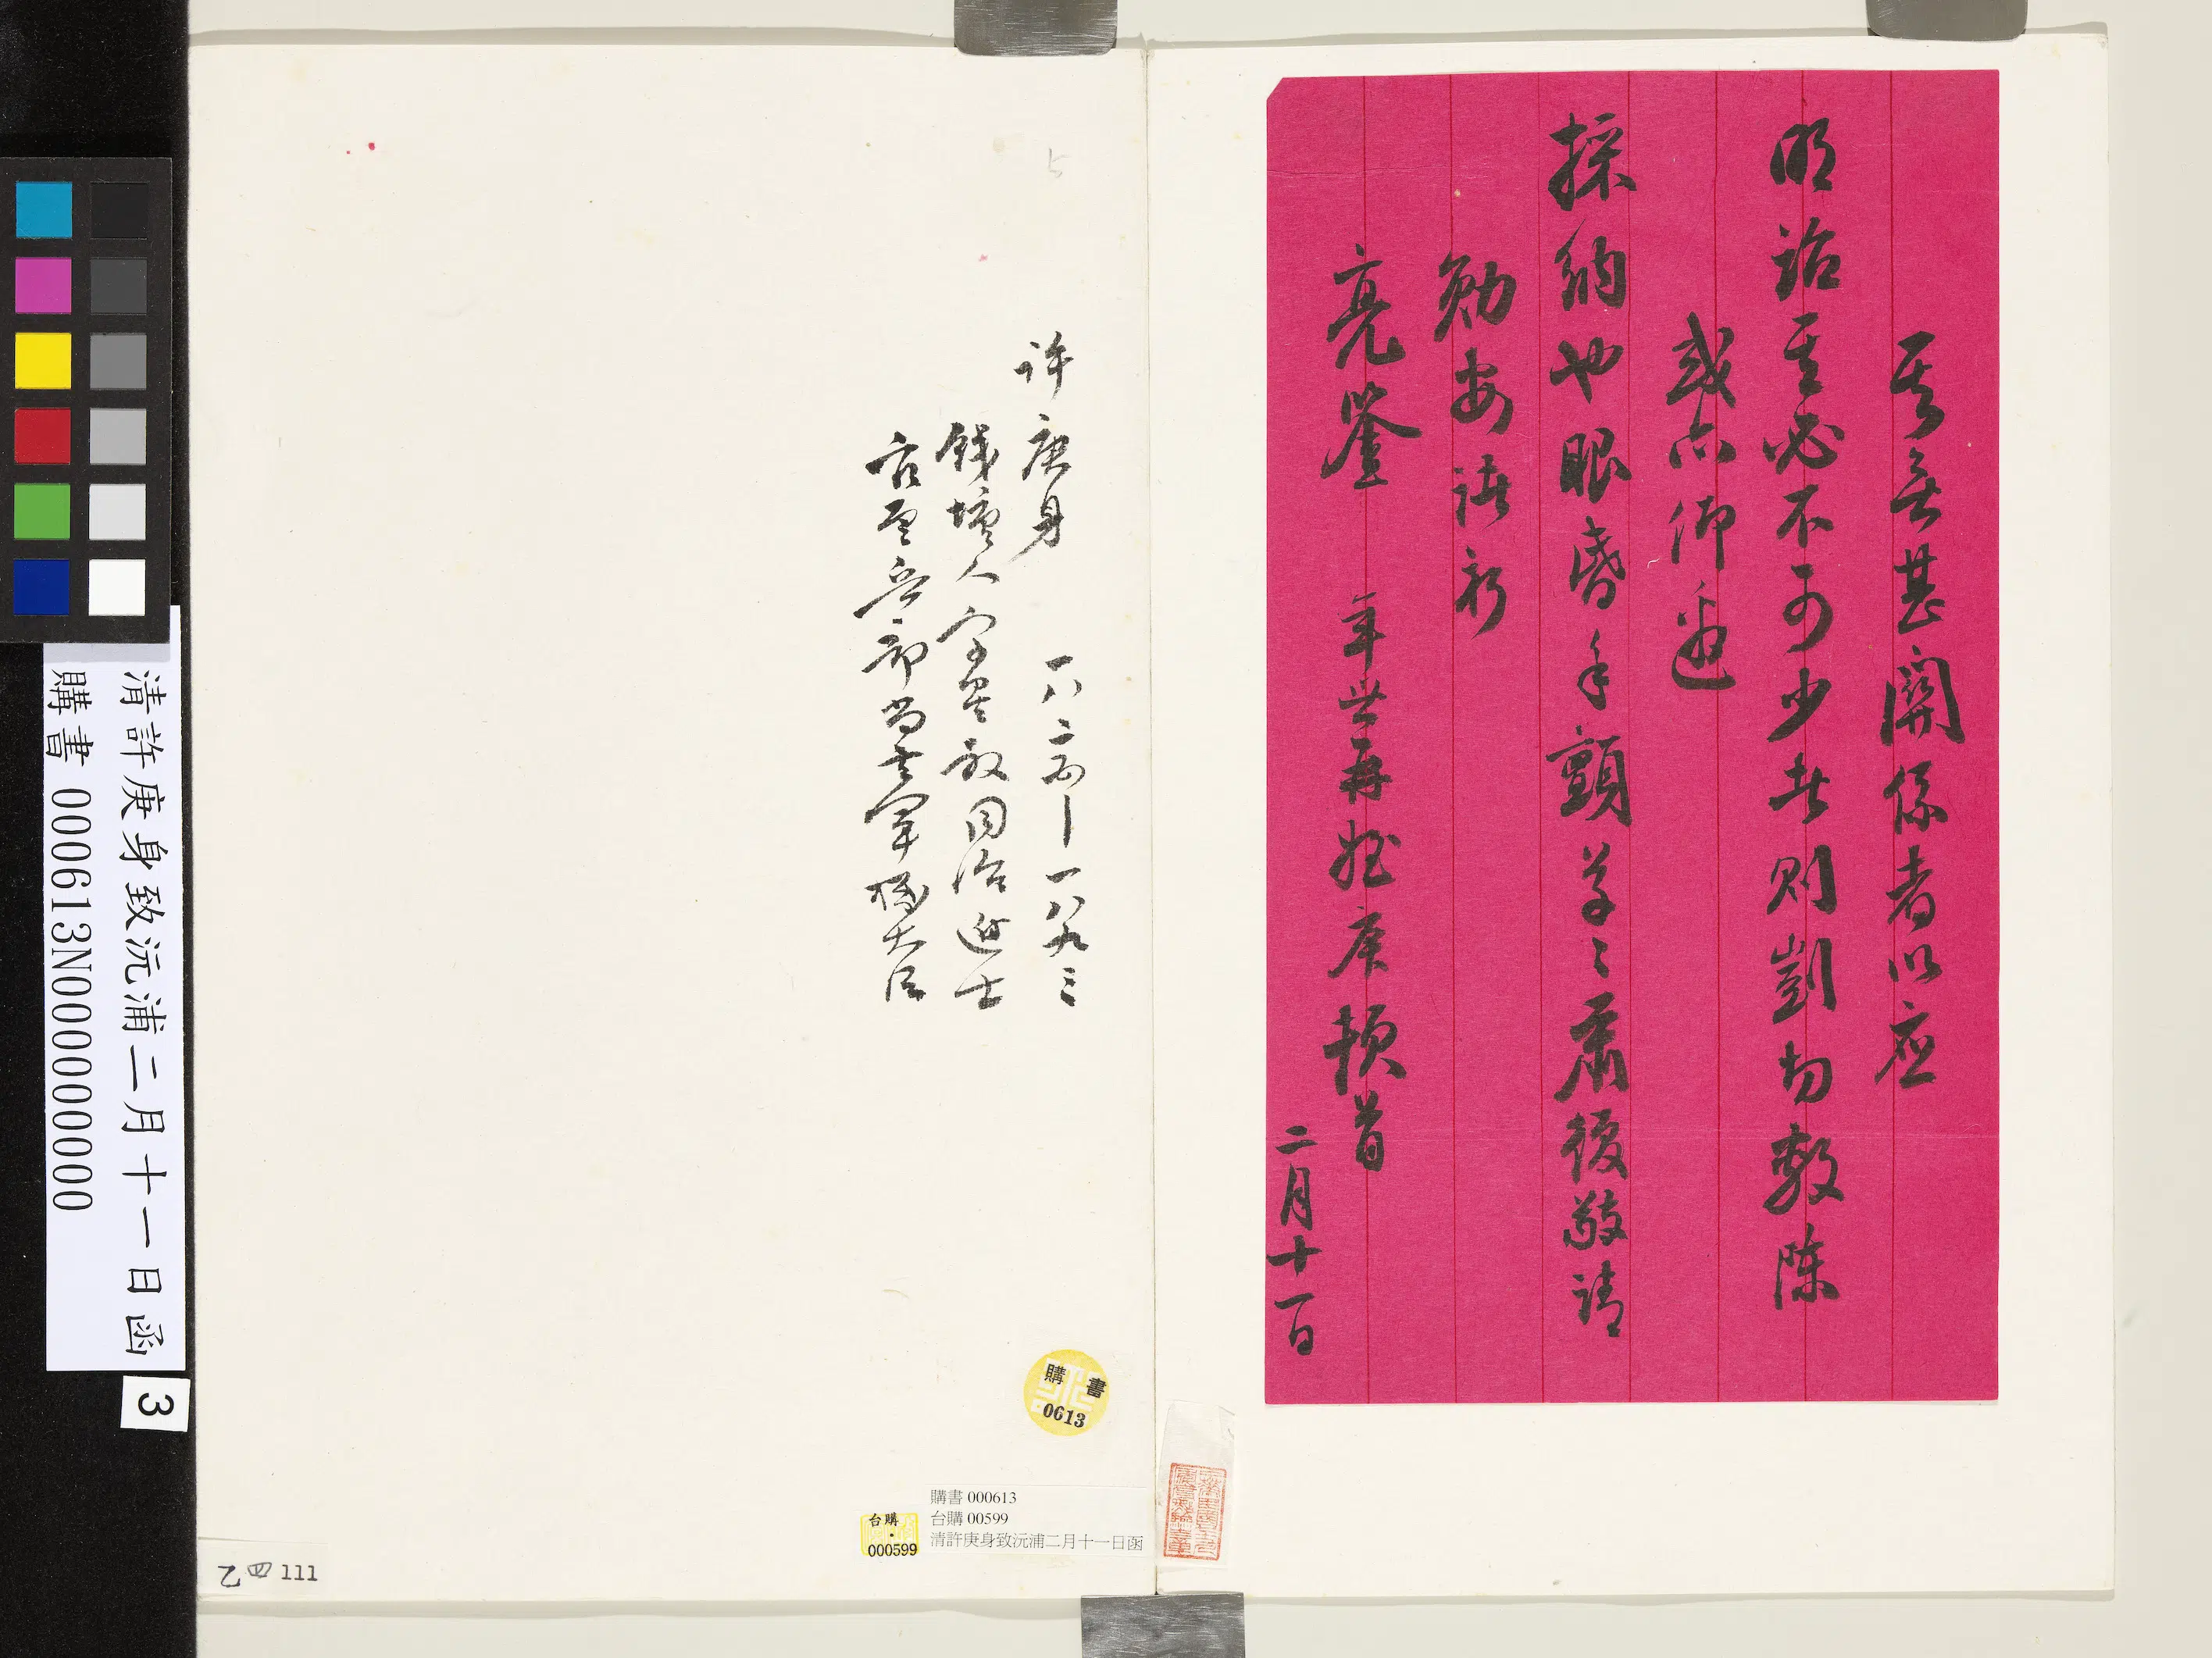 其無甚關係者以應
明詔其必不可少者則剴切敷陳
或亦仰邀
採納也眼昏手顫草〻肅復敬請
勛安諸祈
亮鑒 年世再姪庚頓首
二月十一日
许庚身 一八二五—一八九三
钱塘人 字星叔 同治进士
官至兵部尚书军机大臣
購書
0613
購書 000613
台購 00599
清許庚身致沅浦二月十一日函
台購
·
000599
乙四 111
清許庚身致沅浦二月十一日函
購書 000613N000000000
3